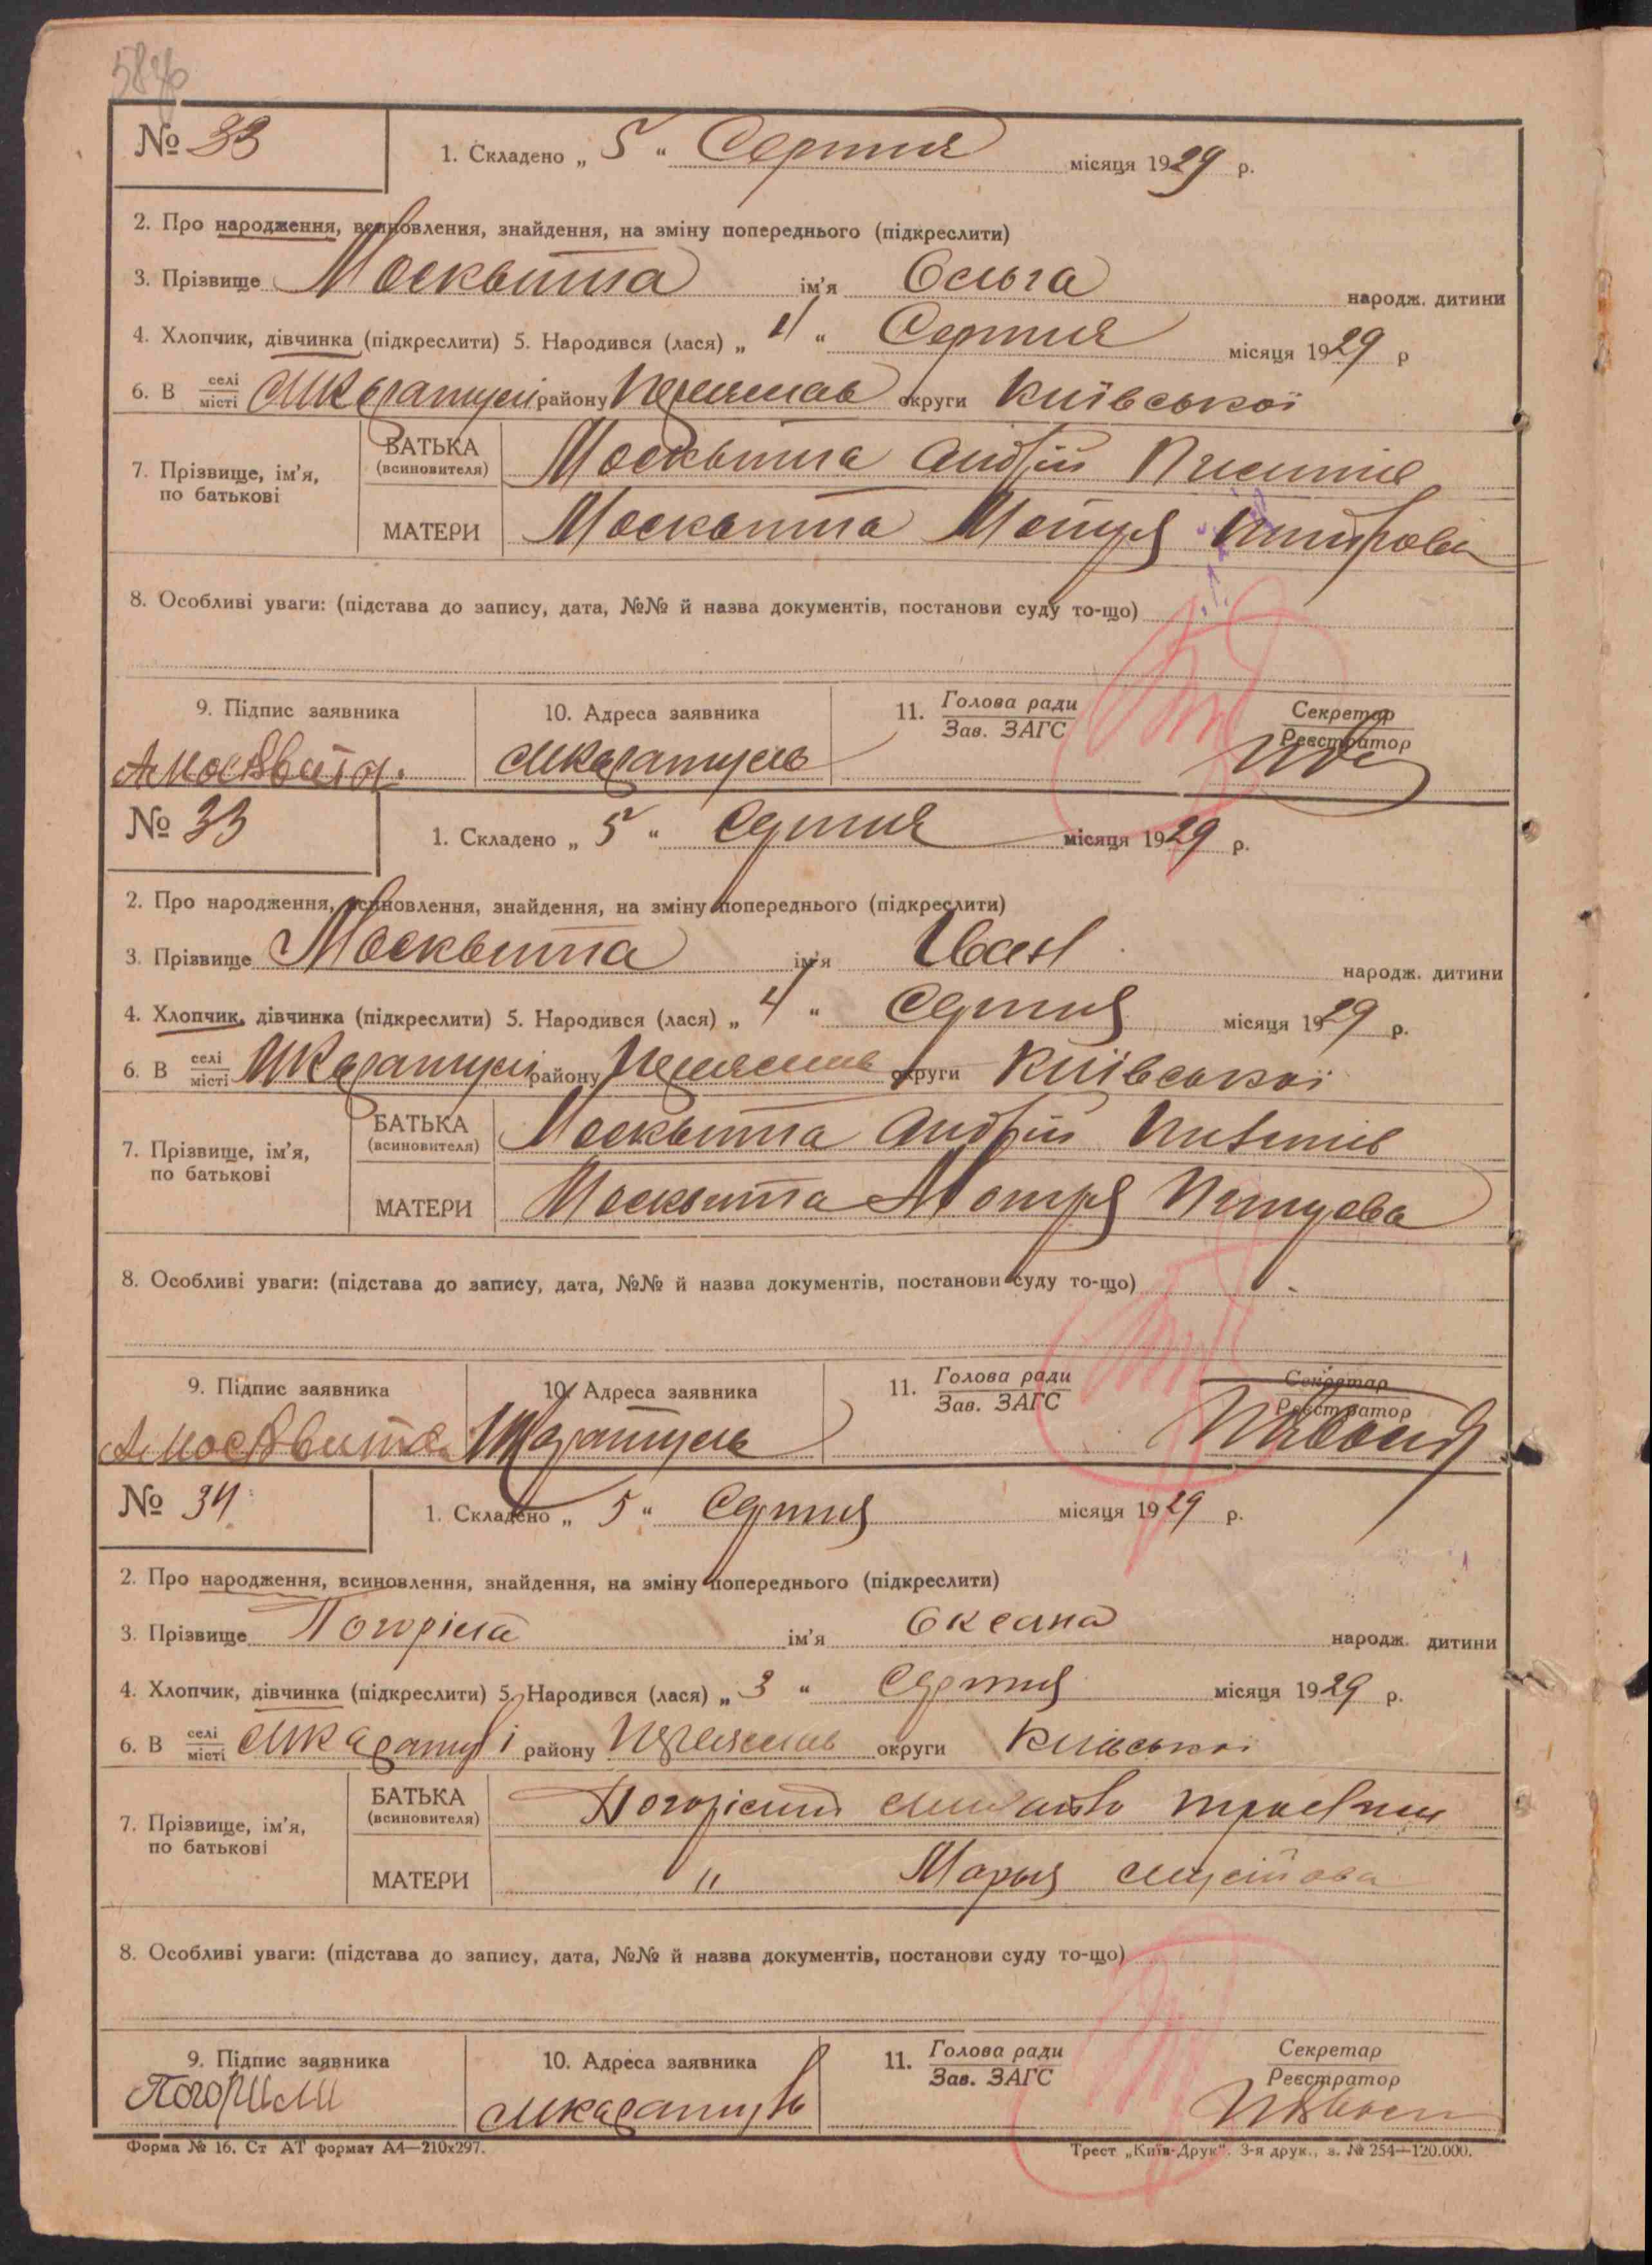 58
№ 33
1. Складено „ 5 “ Серпня місяця 1929 р.
2. Про народження, всиновлення, знайдення, на зміну попереднього (підкреслити)
3. Прізвище Москвыта ім'я Ольга народж. дитини
4. Хлопчик, дівчинка (підкреслити) 5. Народився (лася) „ 4 “ Серпня місяця 1929 р
6. В селі місті району Переяслав округи Київської
7. Прізвище, ім'я, по батькові
БАТЬКА (всиновителя) Москвыта Андрій
МАТЕРИ Москвыта Мотря
8. Особливі уваги: (підстава до запису, дата, №№ й назва документів, постанови суду то-що)
9. Підпис заявника 10. Адреса заявника 11. Голова ради Зав. ЗАГС Секретар Реєстратор
А Москвита.
№ 33
1. Складено „ 5 “ Серпня місяця 1929 р.
2. Про народження, всиновлення, знайдення, на зміну попереднього (підкреслити)
3. Прізвище Москвыта ім'я Іван народж. дитини
4. Хлопчик, дівчинка (підкреслити) 5. Народився (лася) „ 4 “ Серпня місяця 1929 р.
6. В селі місті району Переяслав округи Київської
7. Прізвище, ім'я, по батькові
БАТЬКА (всиновителя) Москвыта Андрій
МАТЕРИ Москвыта Мотря
8. Особливі уваги: (підстава до запису, дата, №№ й назва документів, постанови суду то-що)
9. Підпис заявника 10. Адреса заявника 11. Голова ради Зав. ЗАГС Секретар Реєстратор
А Москвита
№ 34
1. Складено „ 5 “ Серпня місяця 1929 р.
2. Про народження, всиновлення, знайдення, на зміну попереднього (підкреслити)
3. Прізвище Погоріла ім'я Оксана народж. дитини
4. Хлопчик, дівчинка (підкреслити) 5. Народився (лася) „ 3 “ Серпня місяця 1929 р.
6. В селі місті району Переяслав округи Київської
7. Прізвище, ім'я, по батькові
БАТЬКА (всиновителя) Погорілий
МАТЕРИ " Марыя
8. Особливі уваги: (підстава до запису, дата, №№ й назва документів, постанови суду то-що)
9. Підпис заявника 10. Адреса заявника 11. Голова ради Зав. ЗАГС Секретар Реєстратор
Погорили
Форма № 16. Ст АТ формат А4—210х297. Трест „Київ-Друк“. 3-я друк., з. № 254—120.000.